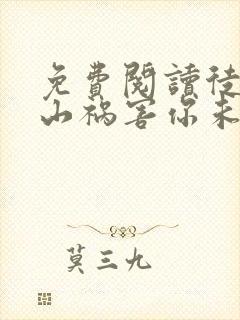 免費閱讀徒
山禍害你未
莫三九